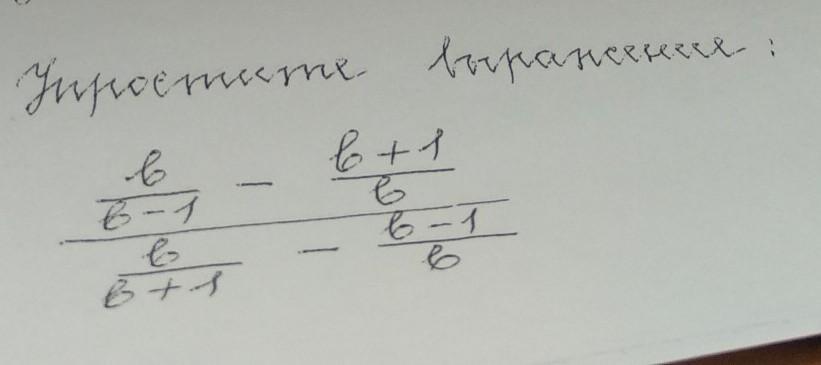 Упростите выражение:
b/(b-1) - (b+1)/b
b/(b+1) - (b-1)/b